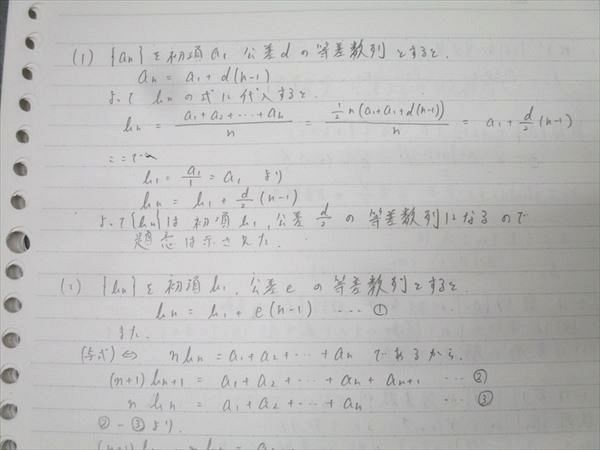 (1) {an}を初項a1 公差dの等差数列とすると、
an = a1 + d(n-1)
よって bnの式に代入すると、
bn = (a1+a2+…+an)/n = (1/2 n(a1+a1+d(n-1)))/n = a1 + d/2 (n-1)
ここで
b1 = a1/1 = a1 より
bn = b1 + d/2 (n-1)
よって{bn}は 初項b1,公差 d/2 の 等差数列になるので
題意は示された.
(2) {bn}を 初項b1, 公差e の等差数列とすると
bn = b1 + e(n-1) … ①
また.
(与式) ⇔ nbn = a1+a2+…+an であるから.
(n+1)bn+1 = a1+a2+…+an+an+1 … ②
n bn = a1+a2+…+an … ③
②-③より.